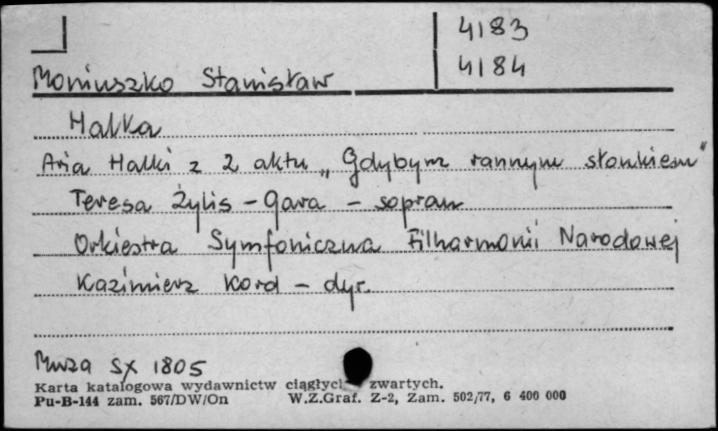 4183
4184
Moniuszko Stanisław
Halka
Aria Halki z 2 aktu „Gdybym rannym słonkiem"
Teresa Żylis-Gara - sopran
Orkiestra Symfoniczna Filharmonii Narodowej
Kazimierz Kord - dyr.
Muza SX 1805
Karta katalogowa wydawnictw ciągłych zwartych.
Pu-B-144 zam. 567/DW/On W.Z.Graf. Z-2, Zam. 502/77, 6 400 000